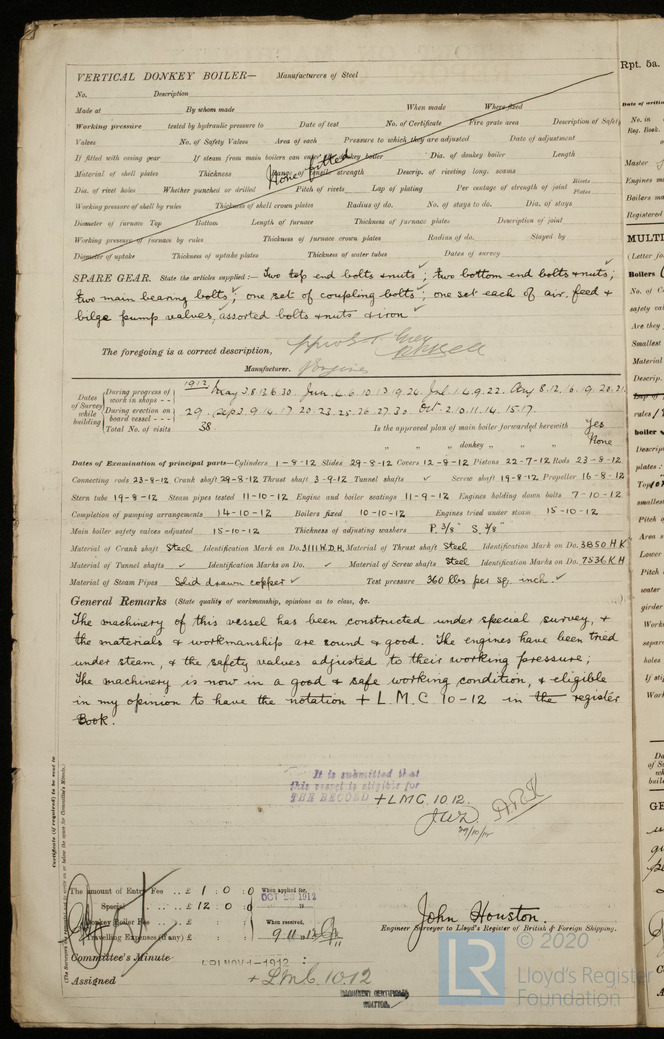 VERTICAL DONKEY BOILER— Manufacturers of Steel
No. Description
Made at By whom made When made Where fixed
Working pressure tested by hydraulic pressure to Date of test No. of Certificate Fire grate area Description of Safety
Valves No. of Safety Valves Area of each Pressure to which they are adjusted Date of adjustment
If fitted with easing gear If steam from main boilers can enter the donkey boiler Dia. of donkey boiler Length
Material of shell plates Thickness Range of tensile strength Descrip. of riveting long. seams
None fitted
Dia. of rivet holes Whether punched or drilled Pitch of rivets Lap of plating Per centage of strength of joint Rivets Plates
Working pressure of shell by rules Thickness of shell crown plates Radius of do. No. of stays to do. Dia. of stays
Diameter of furnace Top Bottom Length of furnace Thickness of furnace plates Description of joint
Working pressure of furnace by rules Thickness of furnace crown plates Radius of do. Stayed by
Diameter of uptake Thickness of uptake plates Thickness of water tubes Dates of survey
SPARE GEAR. State the articles supplied:— Two top end bolts & nuts ✓; two bottom end bolts & nuts ✓;
two main bearing bolts ✓; one set of coupling bolts ✓; one set each of air, feed &
bilge pump valves, assorted bolts & nuts & iron ✓
The foregoing is a correct description,
Manufacturer.
Dates of Survey while building
During progress of work in shops - - 1912 May 3.8.13.6.30 Jun. 4.6.10.13.19.24 Jul 1.4.9.22. Aug 8.12.16.19.20.21.
During erection on board vessel - - - 29. Sep 3.9.14.17 20.23.25.26.27.30 Oct 2.10.11.14.15.17.
Total No. of visits 38. Is the approved plan of main boiler forwarded herewith Yes
" " " donkey " " " None
Dates of Examination of principal parts—Cylinders 1-8-12 Slides 29-8-12 Covers 12-8-12 Pistons 22-7-12 Rods 23-8-12
Connecting rods 23-8-12 Crank shaft 29-8-12 Thrust shaft 3-9-12 Tunnel shafts ✓ Screw shaft 19-8-12 Propeller 16-8-12
Stern tube 19-8-12 Steam pipes tested 11-10-12 Engine and boiler seatings 11-9-12 Engines holding down bolts 7-10-12
Completion of pumping arrangements 14-10-12 Boilers fixed 10-10-12 Engines tried under steam 15-10-12
Main boiler safety valves adjusted 15-10-12 Thickness of adjusting washers P. 3/8" S. 3/8"
Material of Crank shaft Steel Identification Mark on Do. 3111 H.D.H. Material of Thrust shaft Steel Identification Mark on Do. 3850 H K
Material of Tunnel shafts ✓ Identification Marks on Do. ✓ Material of Screw shafts Steel Identification Marks on Do. 7536 K H
Material of Steam Pipes Solid drawn copper ✓ Test pressure 360 lbs per sq. inch. ✓
General Remarks (State quality of workmanship, opinions as to class, &c.
The machinery of this vessel has been constructed under special survey, &
the materials & workmanship are sound & good. The engines have been tried
under steam, & the safety valves adjusted to their working pressure;
The machinery is now in a good & safe working condition, & eligible
in my opinion to have the notation + L.M.C. 10-12 in the register
Book.
It is submitted that
this vessel is eligible for
THE RECORD + LMC. 10.12.
29/10/12
Certificate (if required) to be sent to
The amount of Entry Fee .. £ 1 : 0 : 0 When applied for,
Special .. £ 12 : 0 : 0 OCT 28 1912
Donkey Boiler Fee .. £ : : When received,
Travelling Expenses (if any) £ : : 9.11.12
John Houston.
Engineer Surveyor to Lloyd's Register of British & Foreign Shipping.
Committee's Minute NOV 1 - 1912
Assigned + LMC. 10.12
MACHINERY CERTIFICATE
WRITTEN.
LR © 2020
Lloyd's Register
Foundation
Rpt. 5a.
No. in
Reg. Book.
Master
Engines m
Boilers ma
Registered
MULTI
(Letter fo
Boilers
No. of C
safety val
Are they
Smallest
Material
Descrip.
rules
boiler
Descrip
plates :
smallest
Pitch o
Area o
Lower
Pitch
water
girder
Work
separ
holes
If sti
Wor
GE